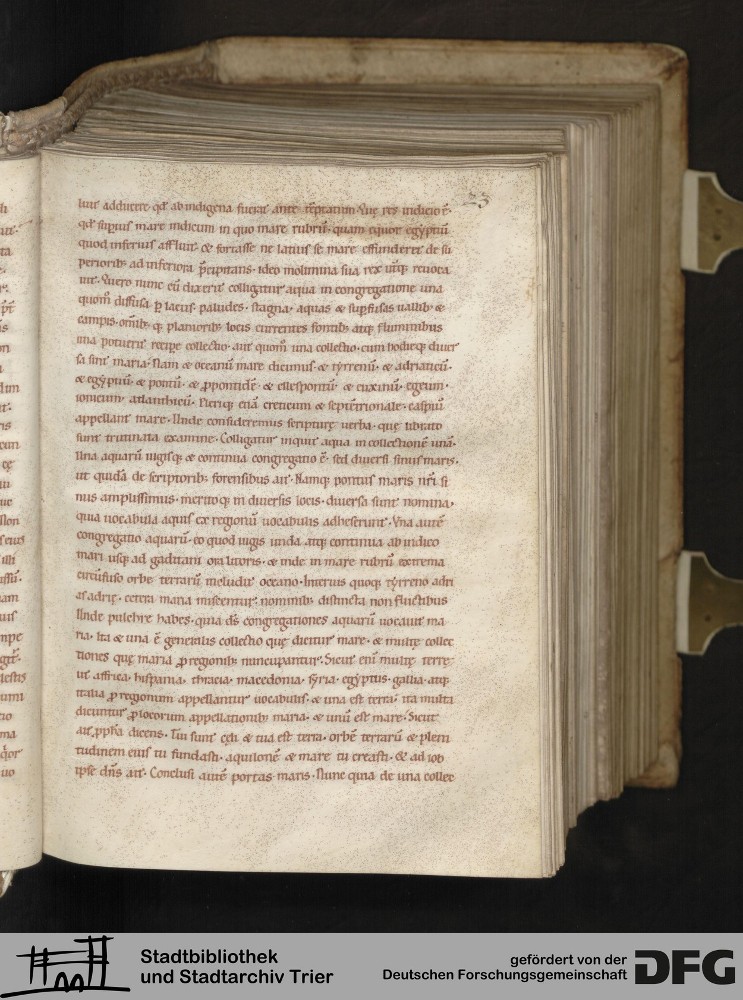 23
luit adducere· qd̄ ab indigena fuerat ante tēptatum· Quę res indicio ē·
qd̄ supius mare indicum in quo mare rubrū· quam equor egyptiū
quod inferius affluit· & fortasse ne latius se mare effunderet de su
periorib; ad inferiora p̄cipitans· ideo molimina sua rex utq; reuoca
uit· Quero nunc cū dixerit colligatur aqua in congregatione una
quom̄ diffusa p lacus· paludes· stagna· aquas & supfusas uallib; &
campis· omīb; q; planiorib; locis currentes fontib; atq; fluminibus
una potuerit recipe collectio· aut quom̄ una collectio· cum hodieq; diuer
sa sint maria· Nam & oceanū mare dicimus· & tyrrenū· & adriaticū·
& egyptiū· & pontū· & ppontidē· & ellespontū· & euxinū· egeum·
ionicum· atlanthicū· Pleriq; etiā creticum & septētrionale· caspiū
appellant mare· Unde consideremus scripturę uerba· quę librato
sunt trutinata examine· Colligatur inquit aqua in collectionē unā·
Una aquarū iugisq; & continua congregatio ē· sed diuersi sinus maris·
ut quidā de scriptorib; forensibus ait· Namq; pontus maris nr̄i si
nus amplissimus· meritoq; in diuersis locis· diuersa sunt nomina·
quia uocabula aquis ex regionū uocabulis adheserunt· Una autē
congregatio aquarū· eo quod iugis unda atq; continua ab indico
mari usq; ad gaditani ora litoris· & inde in mare rubrū extrema
circūfuso orbe terrarū includit oceano· Interius quoq; tyrreno adri
as adrię· cetera maria miscentur· nominib; distincta non fluctibus
Unde pulchre habes· quia d̄s congregationes aquarū uocauit ma
ria· Ita & una ē generalis collectio quę dicitur mare· & multę collec
tiones quę maria p regionib; nuncupantur· Sicut enī multę terrę
ut affrica· hispania· thracia· macedonia· syria· egyptus· gallia· atq;
italia p regionum appellantur uocabulis· & una est terra· ita multa
dicuntur p locorum appellationib; maria· & unū est mare· Sicut
ait ppha dicens· Tui sunt cęli & tua est terra· orbē terrarū & pleni
tudinem eius tu fundasti· aquilonē & mare tu creasti· & ad iob
ipse dn̄s ait· Conclusi autē portas maris· Nunc quia de una collec
Stadtbibliothek
und Stadtarchiv Trier
gefördert von der
Deutschen Forschungsgemeinschaft
DFG